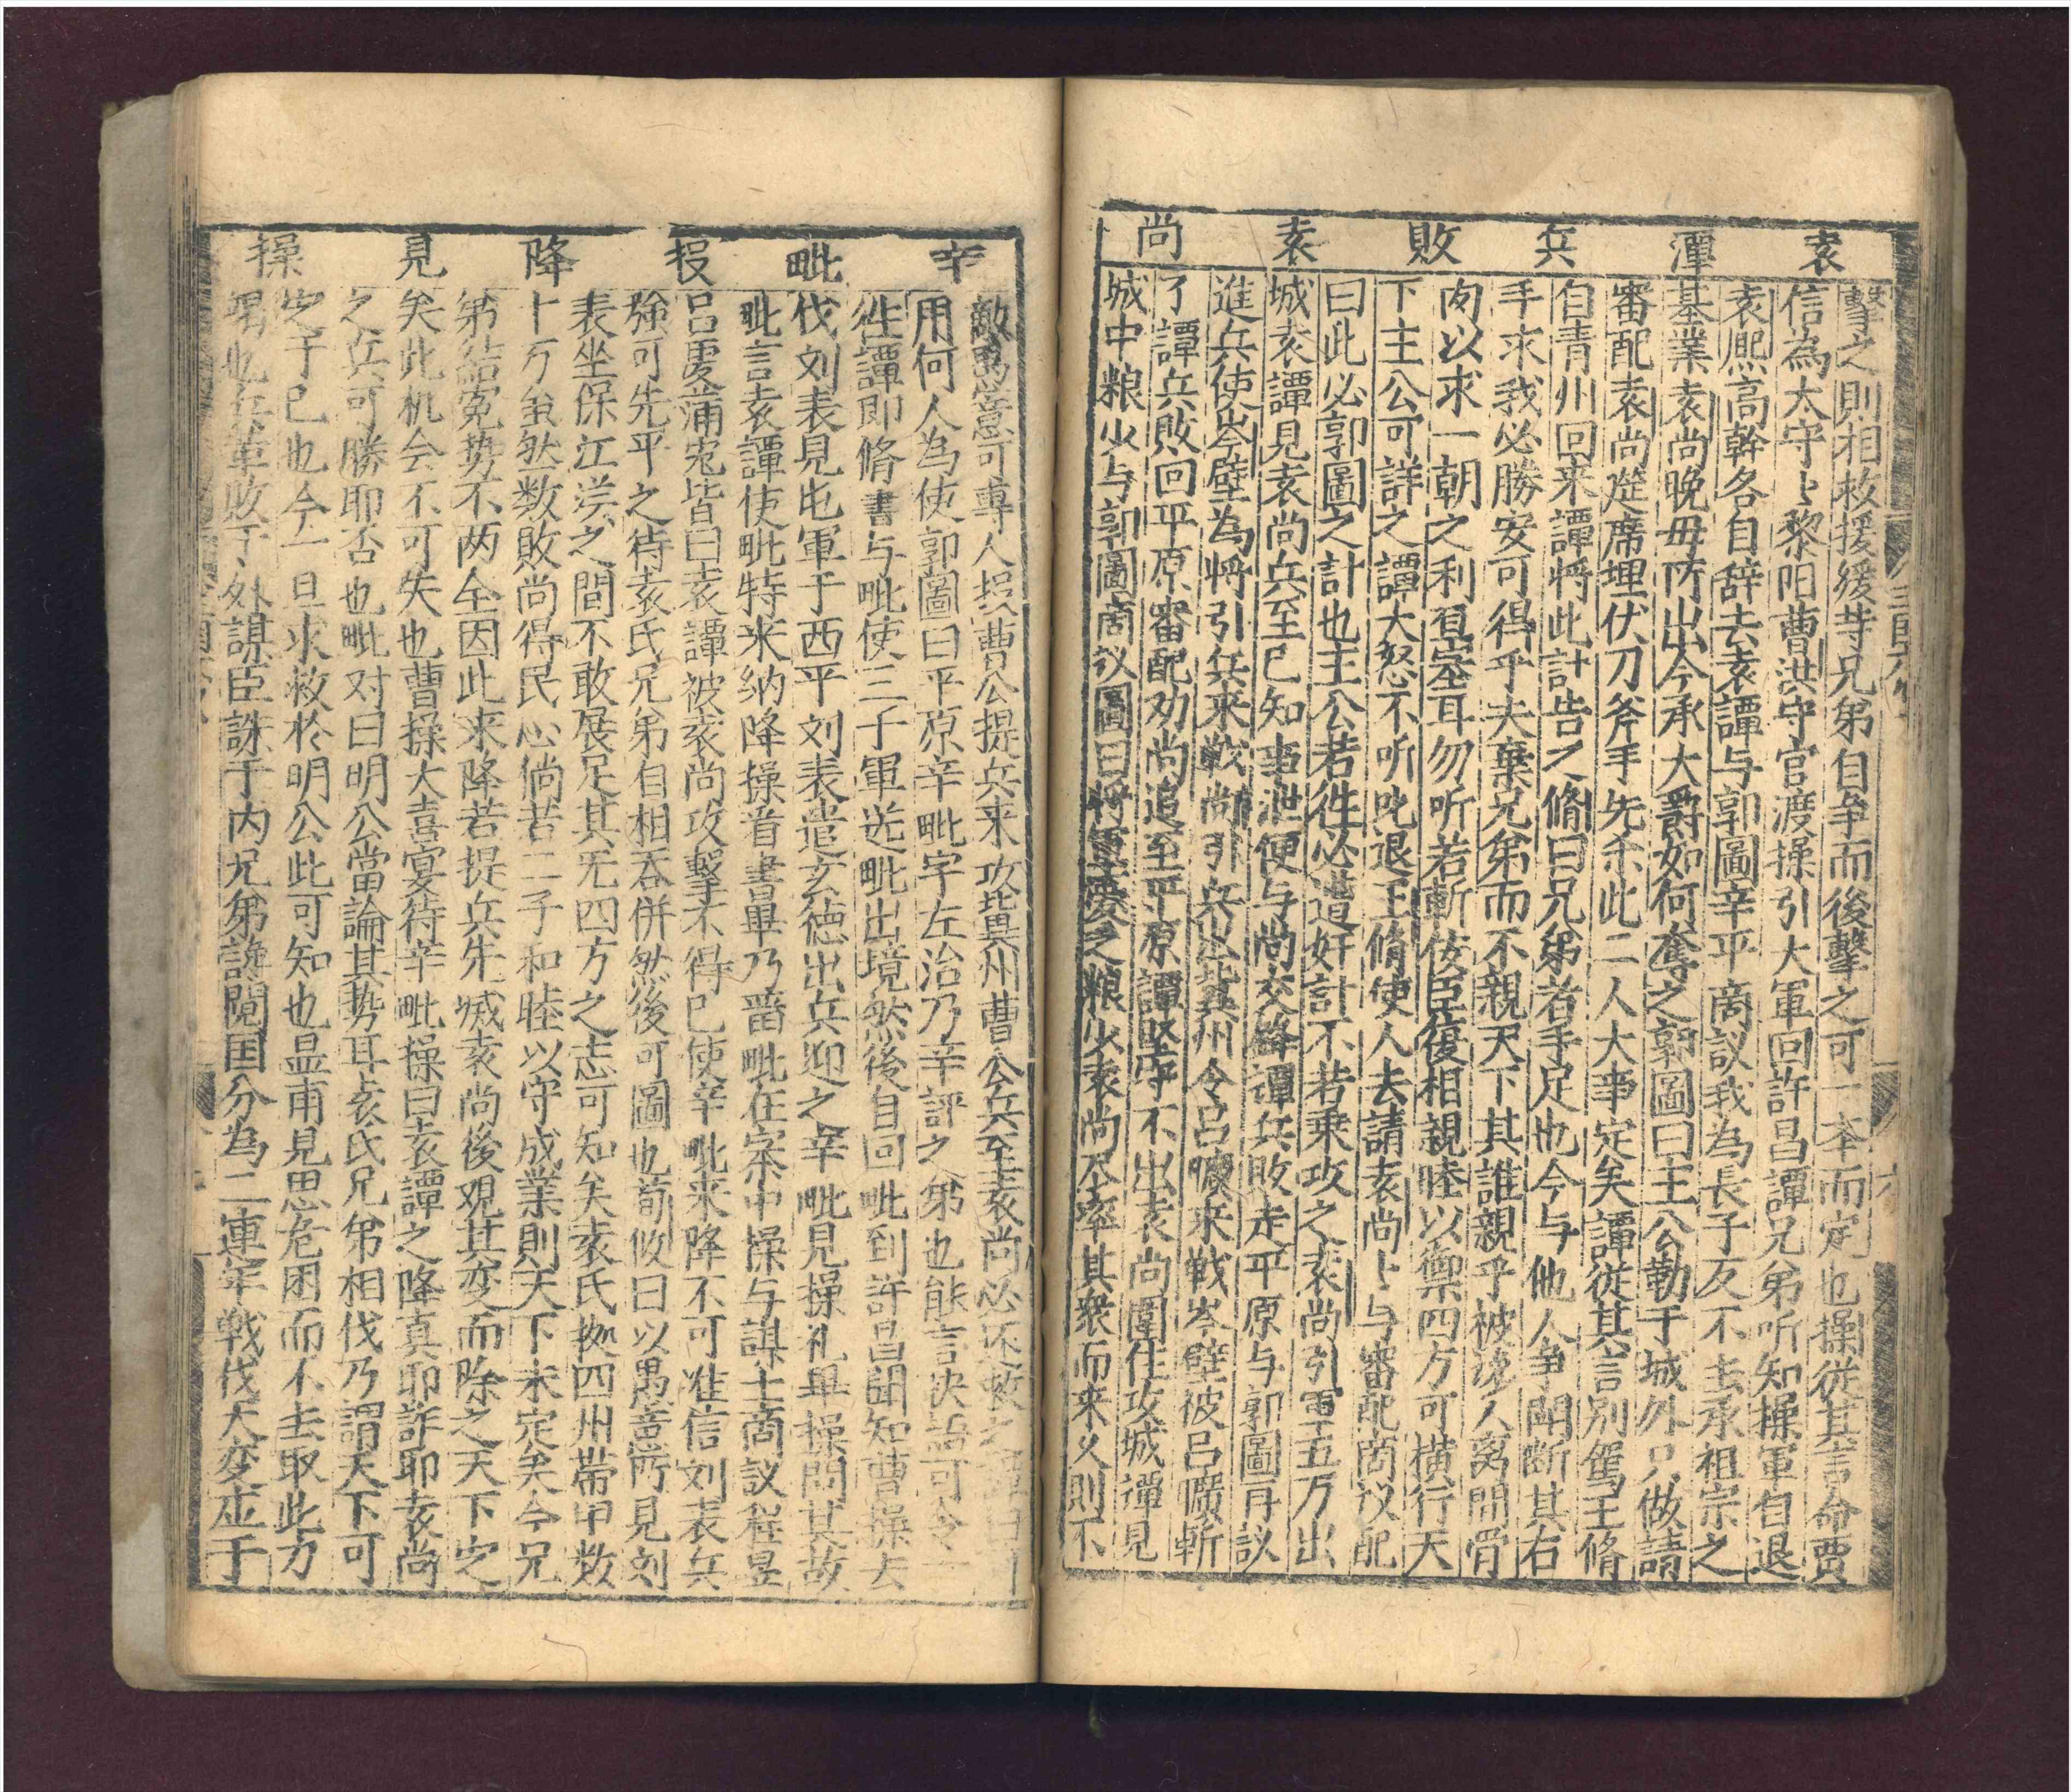 袁潭兵敗袁尚
擊之則相救援緩䓁兄弟自争而後擊之可一夲而定也操從其言命賈
信為太守〻黎阳曹洪守官渡操引大軍回許昌譚兄弟听知操軍自退
袁熈高幹各自辞去袁譚与郭圖辛平商議我為長子友不去承祖宗之
基業袁尚晚毋所出今承大爵如何奪之郭圖曰主公勒于城外只做請
審配袁尚筵席埋伏刀斧手先杀此二人大事定矣譚從其言別駕王脩
自青州回来譚將此計告之脩曰兄弟者手足也今与他人争閗断其右
手求我必勝安可得乎夫棄兄弟而不親天下其誰親乎被谗人离間骨
肉以求一朝之利直塞耳勿听若斬佞臣復相親睦以御四方可横行天
下主公可詳之譚大怒不听叱退王脩使人去請袁尚〻与審配商议配
曰此必郭圖之計也主公若徃必遭奸計不若乗攻之袁尚引軍五万出
城袁譚見袁尚兵至已知事泄便与尚交鋒譚兵敗走平原与郭圖再議
進兵使岑壁為將引兵来戦尚引兵出冀州令呂曠来戦岑壁被呂曠斬
了譚兵敗回平原審配劝尚追至平原譚堅守不出袁尚圍住攻城譚見
城中粮少与郭圖商议圖曰將軍憂之粮少袁尚尽率其衆而来乆則不
辛毗投降見操
敵愚意可專人投曹公提兵来攻冀州曹公兵至袁尚必还救之譚曰
用何人為使郭圖曰平原辛毗字左治乃辛評之弟也能言决語可令
徃譚即脩書与毗使三千軍送毗出境然後自回毗到許昌聞知曹操去
伐刘表見屯軍于西平刘表遣玄德出兵迎之辛毗見操礼畢操問其故
毗言袁譚使毗特来纳降操看書畢乃畱毗在寨中操与謀士商议程昱
呂虔蒲宠皆曰袁譚被袁尚攻擊不得已使辛毗来降不可准信刘表兵
強可先平之待袁氏兄弟自相吞併然後可圖也荀攸曰以愚意所見刘
表坐保江漢之間不敢展足其无四方之志可知矣袁氏拠四州帯甲数
十万虽然数敗尚得民心倘若二子和睦以守成業則天下未定矣今兄
弟結冤势不两全因此来降若提兵先滅袁尚後观其变而除之天下定
矣此机会不可失也曹操大喜宴待辛毗操曰袁譚之降真耶詐耶袁尚
之兵可勝耶否也毗对曰明公當論其势耳袁氏兄弟相伐乃謂天下可
定于已也今一旦求救於明公此可知也显甫見思危困而不去取此力
竭也兵革敗于外謀臣誅于内兄弟讒閱国分為二連年戦伐天变应于